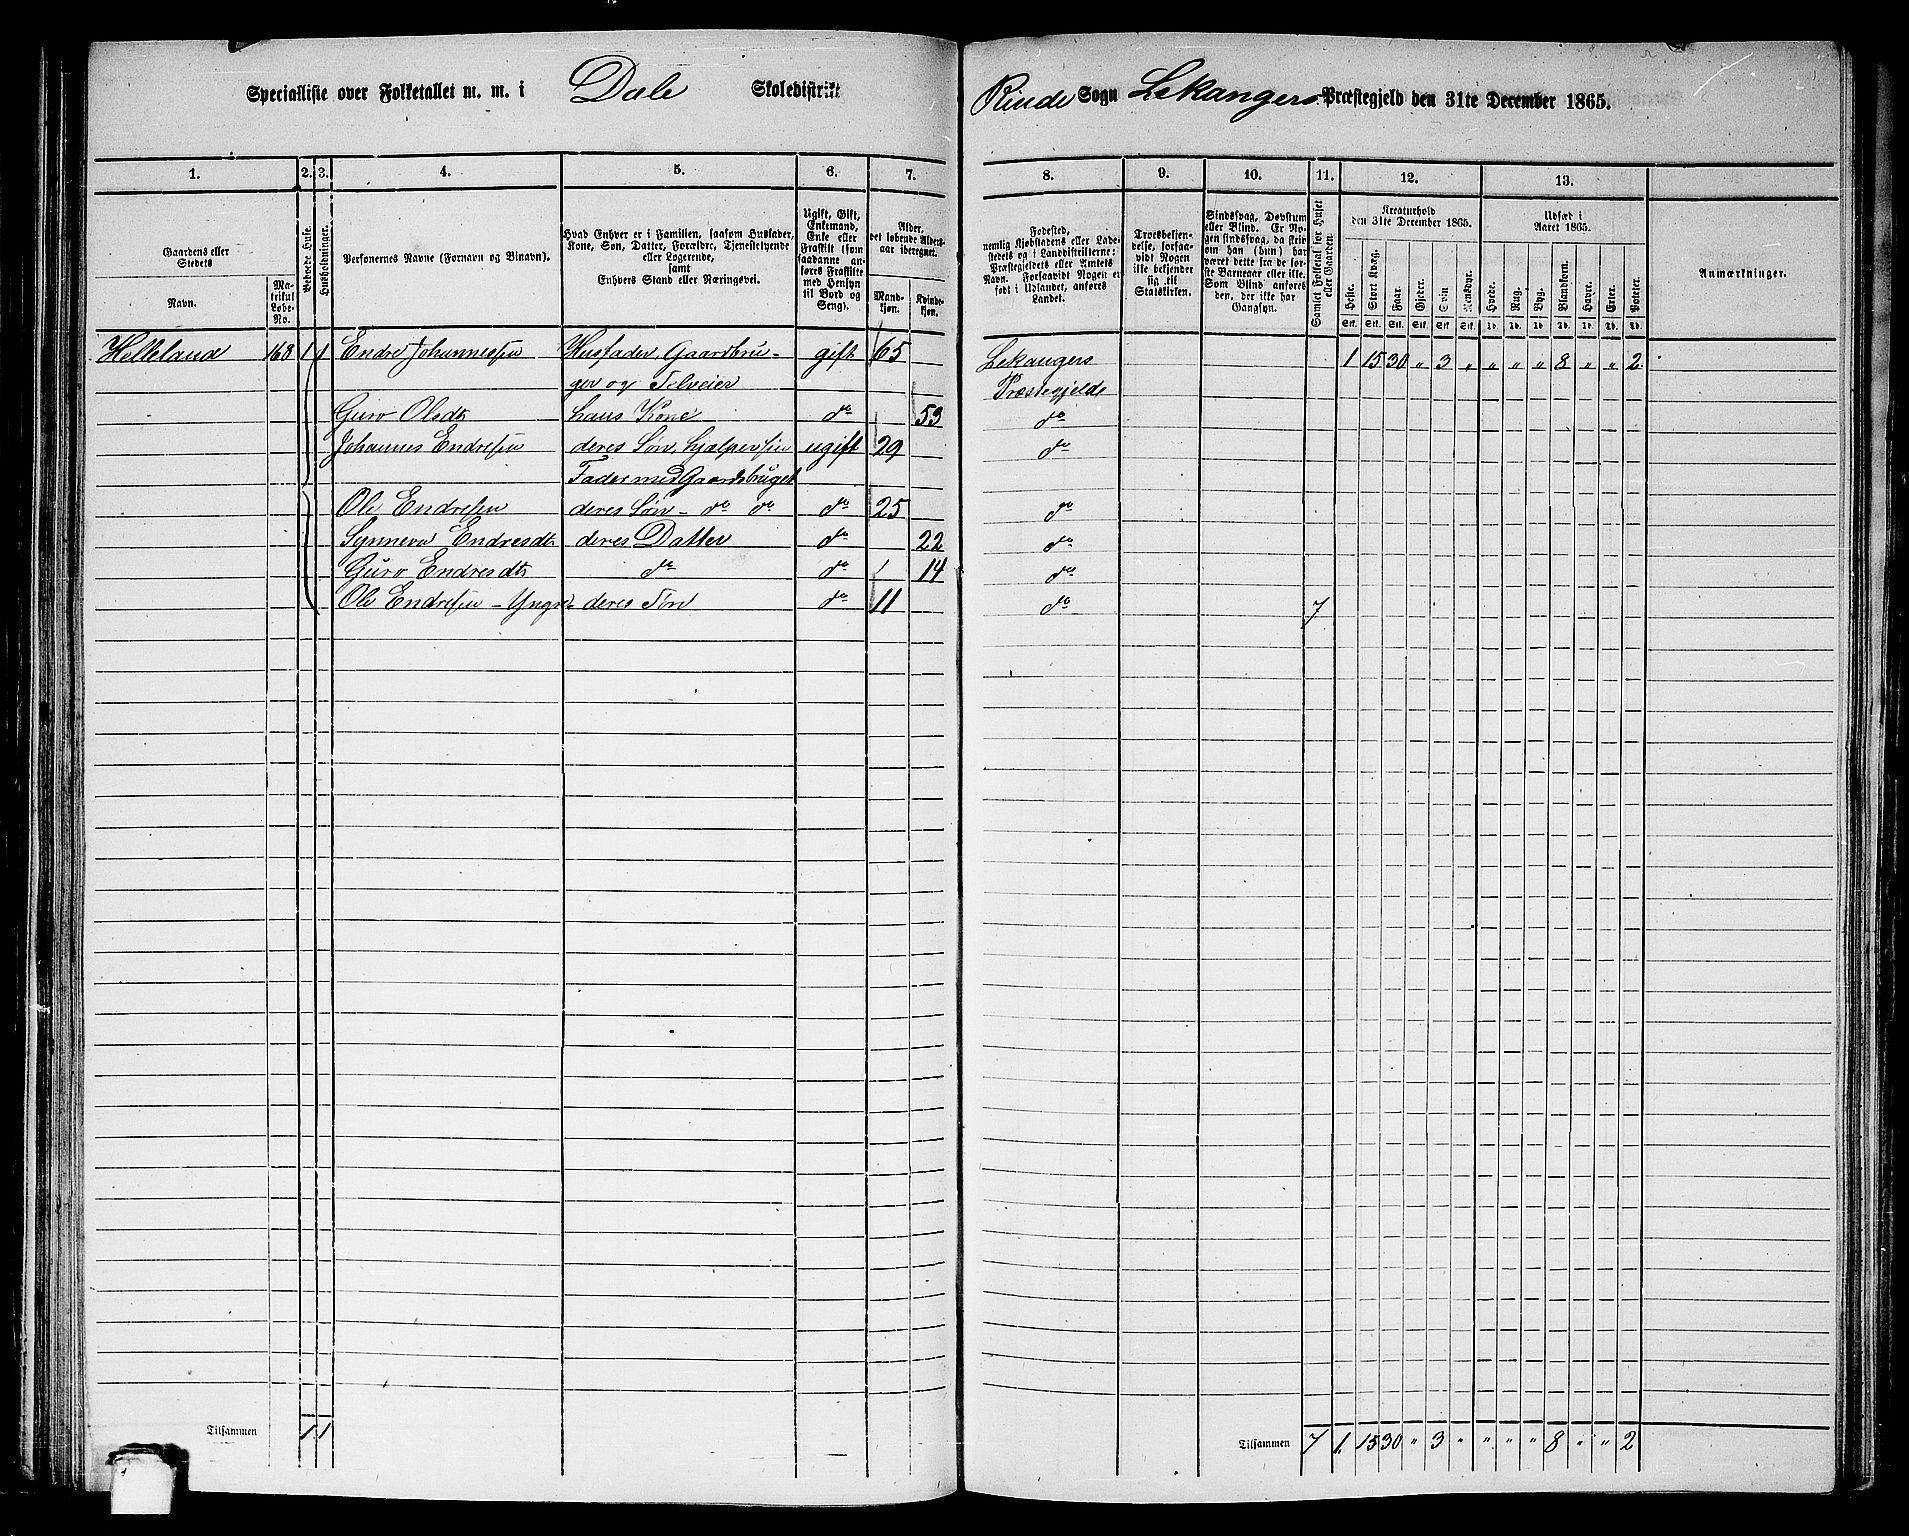 Specialliste over Folketallet m. m. i Dale Skoledistrikt
Rinde Sogn Lekangers Præstegjeld den 31te December 1865.
1. 2. 3. 4. 5. 6. 7. 8. 9. 10. 11. 12. 13.
Gaardens eller Stedets
Navn.
Matrikul Løbe-No.
Beboede Huse.
Husholdninger.
Personernes Navne (Fornavn og Binavn).
Hvad Enhver er i Familien, saasom Husfader,
Kone, Søn, Datter, Forældre, Tjenestetyende
eller Logerende,
samt
Enhvers Stand eller Næringsvei.
Ugift, Gift,
Enkemand,
Enke eller
Fraskilt (som
saadanne anføres
Fraskilte
med Hensyn
til Bord og
Seng).
Alder,
det løbende Alders-
aar iberegnet.
Mandkjøn.
Kvindekjøn.
Fødested,
nemlig Kjøbstadens eller Ladestedets
og i Landdistrikterne:
Præstegjeldets eller Amtets
Navn. Forsaavidt Nogen er
født i Udlandet, anføres
Landet.
Troesbekjendelse,
forsaavidt
Nogen
ikke bekjender
sig til
Statskirken.
Sindssvag, Døvstum
eller Blind. Er Nogen
sindssvag, da skriv
om han (hun) har
været dette fra de første
Barneaar eller ikke.
Som Blind anføres
den, der ikke har
Gangsyn.
Samlet Folketal for Huset eller Gaarden.
Kreaturhold
den 31te December 1865.
Heste. Stort Kvæg. Faar. Gjeder. Svin Rensdyr.
Udsæd i
Aaret 1865.
Hvede. Rug. Byg. Blandkorn. Havre. Erter. Poteter.
Stk. Stk. Stk. Stk. Stk. Stk. Td. Td. Td. Td. Td. Td. Td.
Anmærkninger.
Helleland 168 1 1 Endre Johannessen Husfader, Gaardbru- gift 65 Lekangers 1 15 30 " 3 " " " " 8 " " 2
ger og Selveier Præstegjelde
Guro Olsdt hans Kone do 53 do
Johannes Endresen deres Søn, hjelper sin ugift 29 do
Fader med Gaardsbruget
Ole Endresen deres Søn - do do do 25 do
Synneva Endresdt deres Datter do 22 do
Guro Endresdt do do 14 do
Ole Endresen - Yngre - deres Søn do 11 do 7
Tilsammen 1 1
Tilsammen 7 1 15 30 " 3 " " " " 8 " " 2